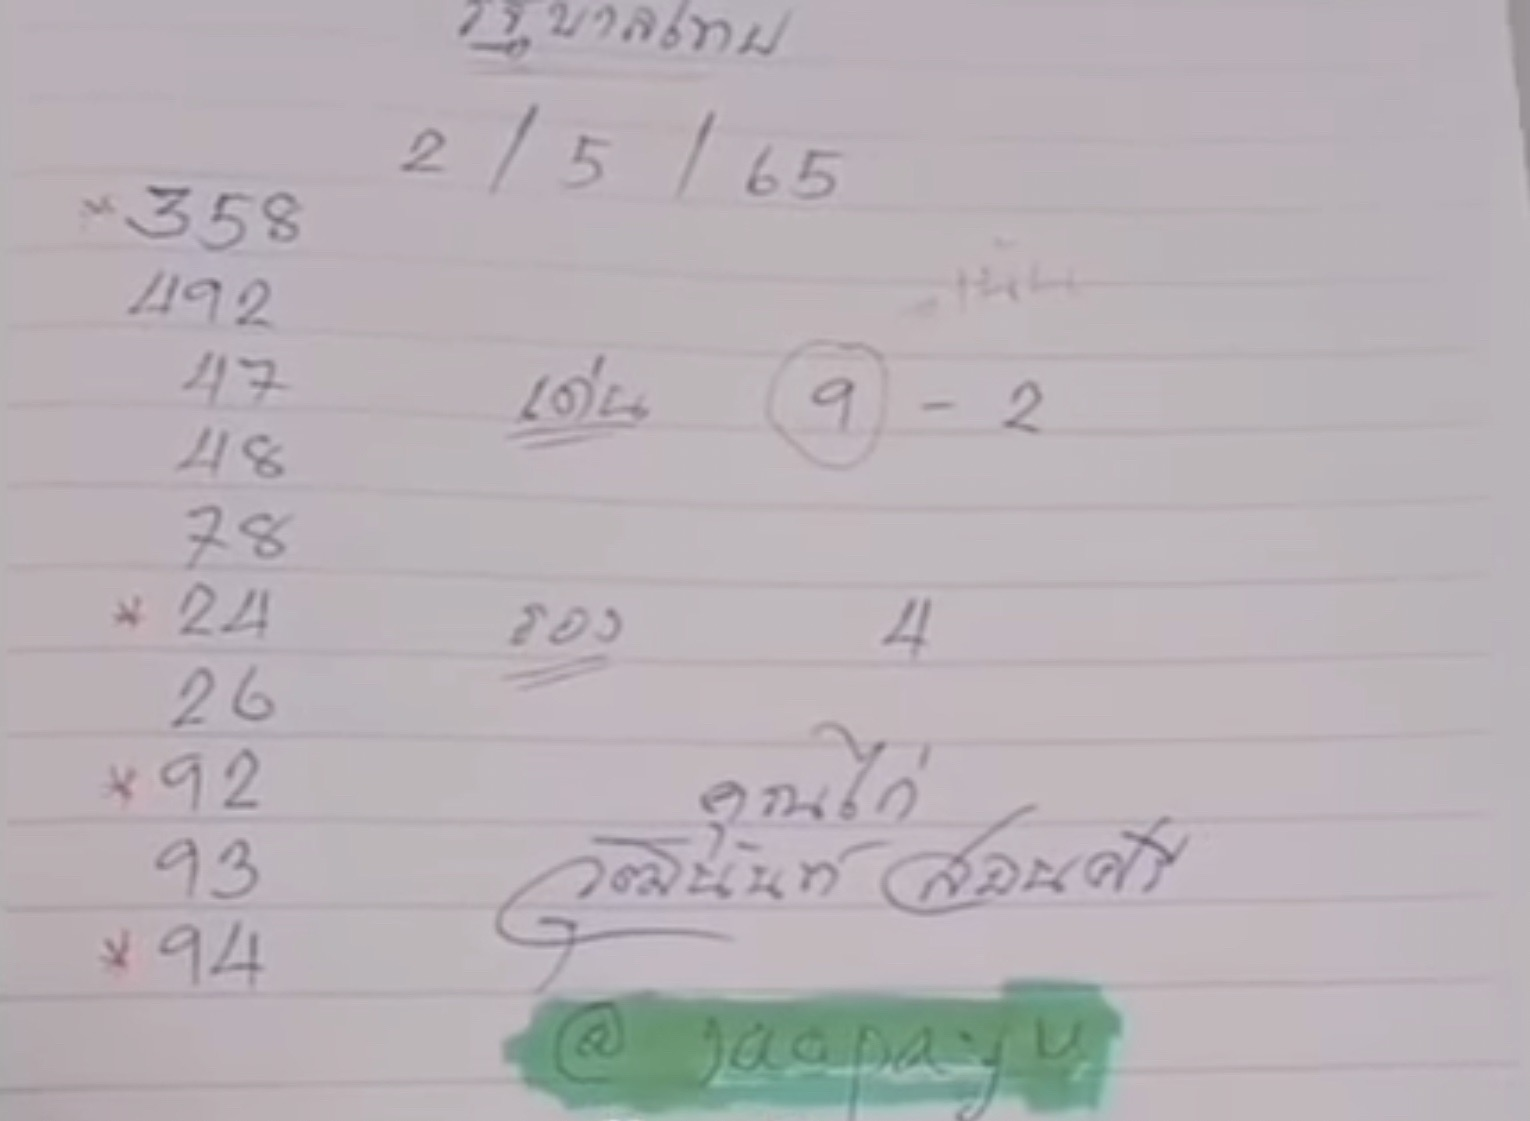 รัฐบาลไทย
2 / 5 / 65
* 358
492
47
เด่น 9 - 2
48
78
* 24
รอง 4
26
* 92
คุณไก่
93
วุฒินันท์ สอนศรี
* 94
@ jaopayu